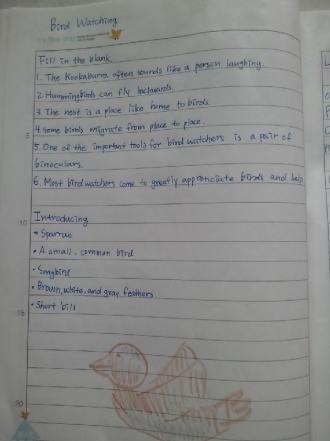 Bird Watching
Fill in the blank.
1. The Kookaburra often sounds like a person laughing.
2. Hummingbirds can fly backwards.
3. The nest is a place like home to birds.
4. Some birds migrate from place to place.
5
5. One of the important tools for bird watchers is a pair of
binoculars.
6. Most bird watchers come to greatly appreciate birds and help
10
Introducing
• Sparrow
• A small, common bird
• Songbird
• Brown, white, and gray feathers
15
• Short bill
20